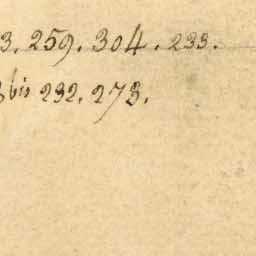 3. 259. 304. 233.
bis 232. 273.